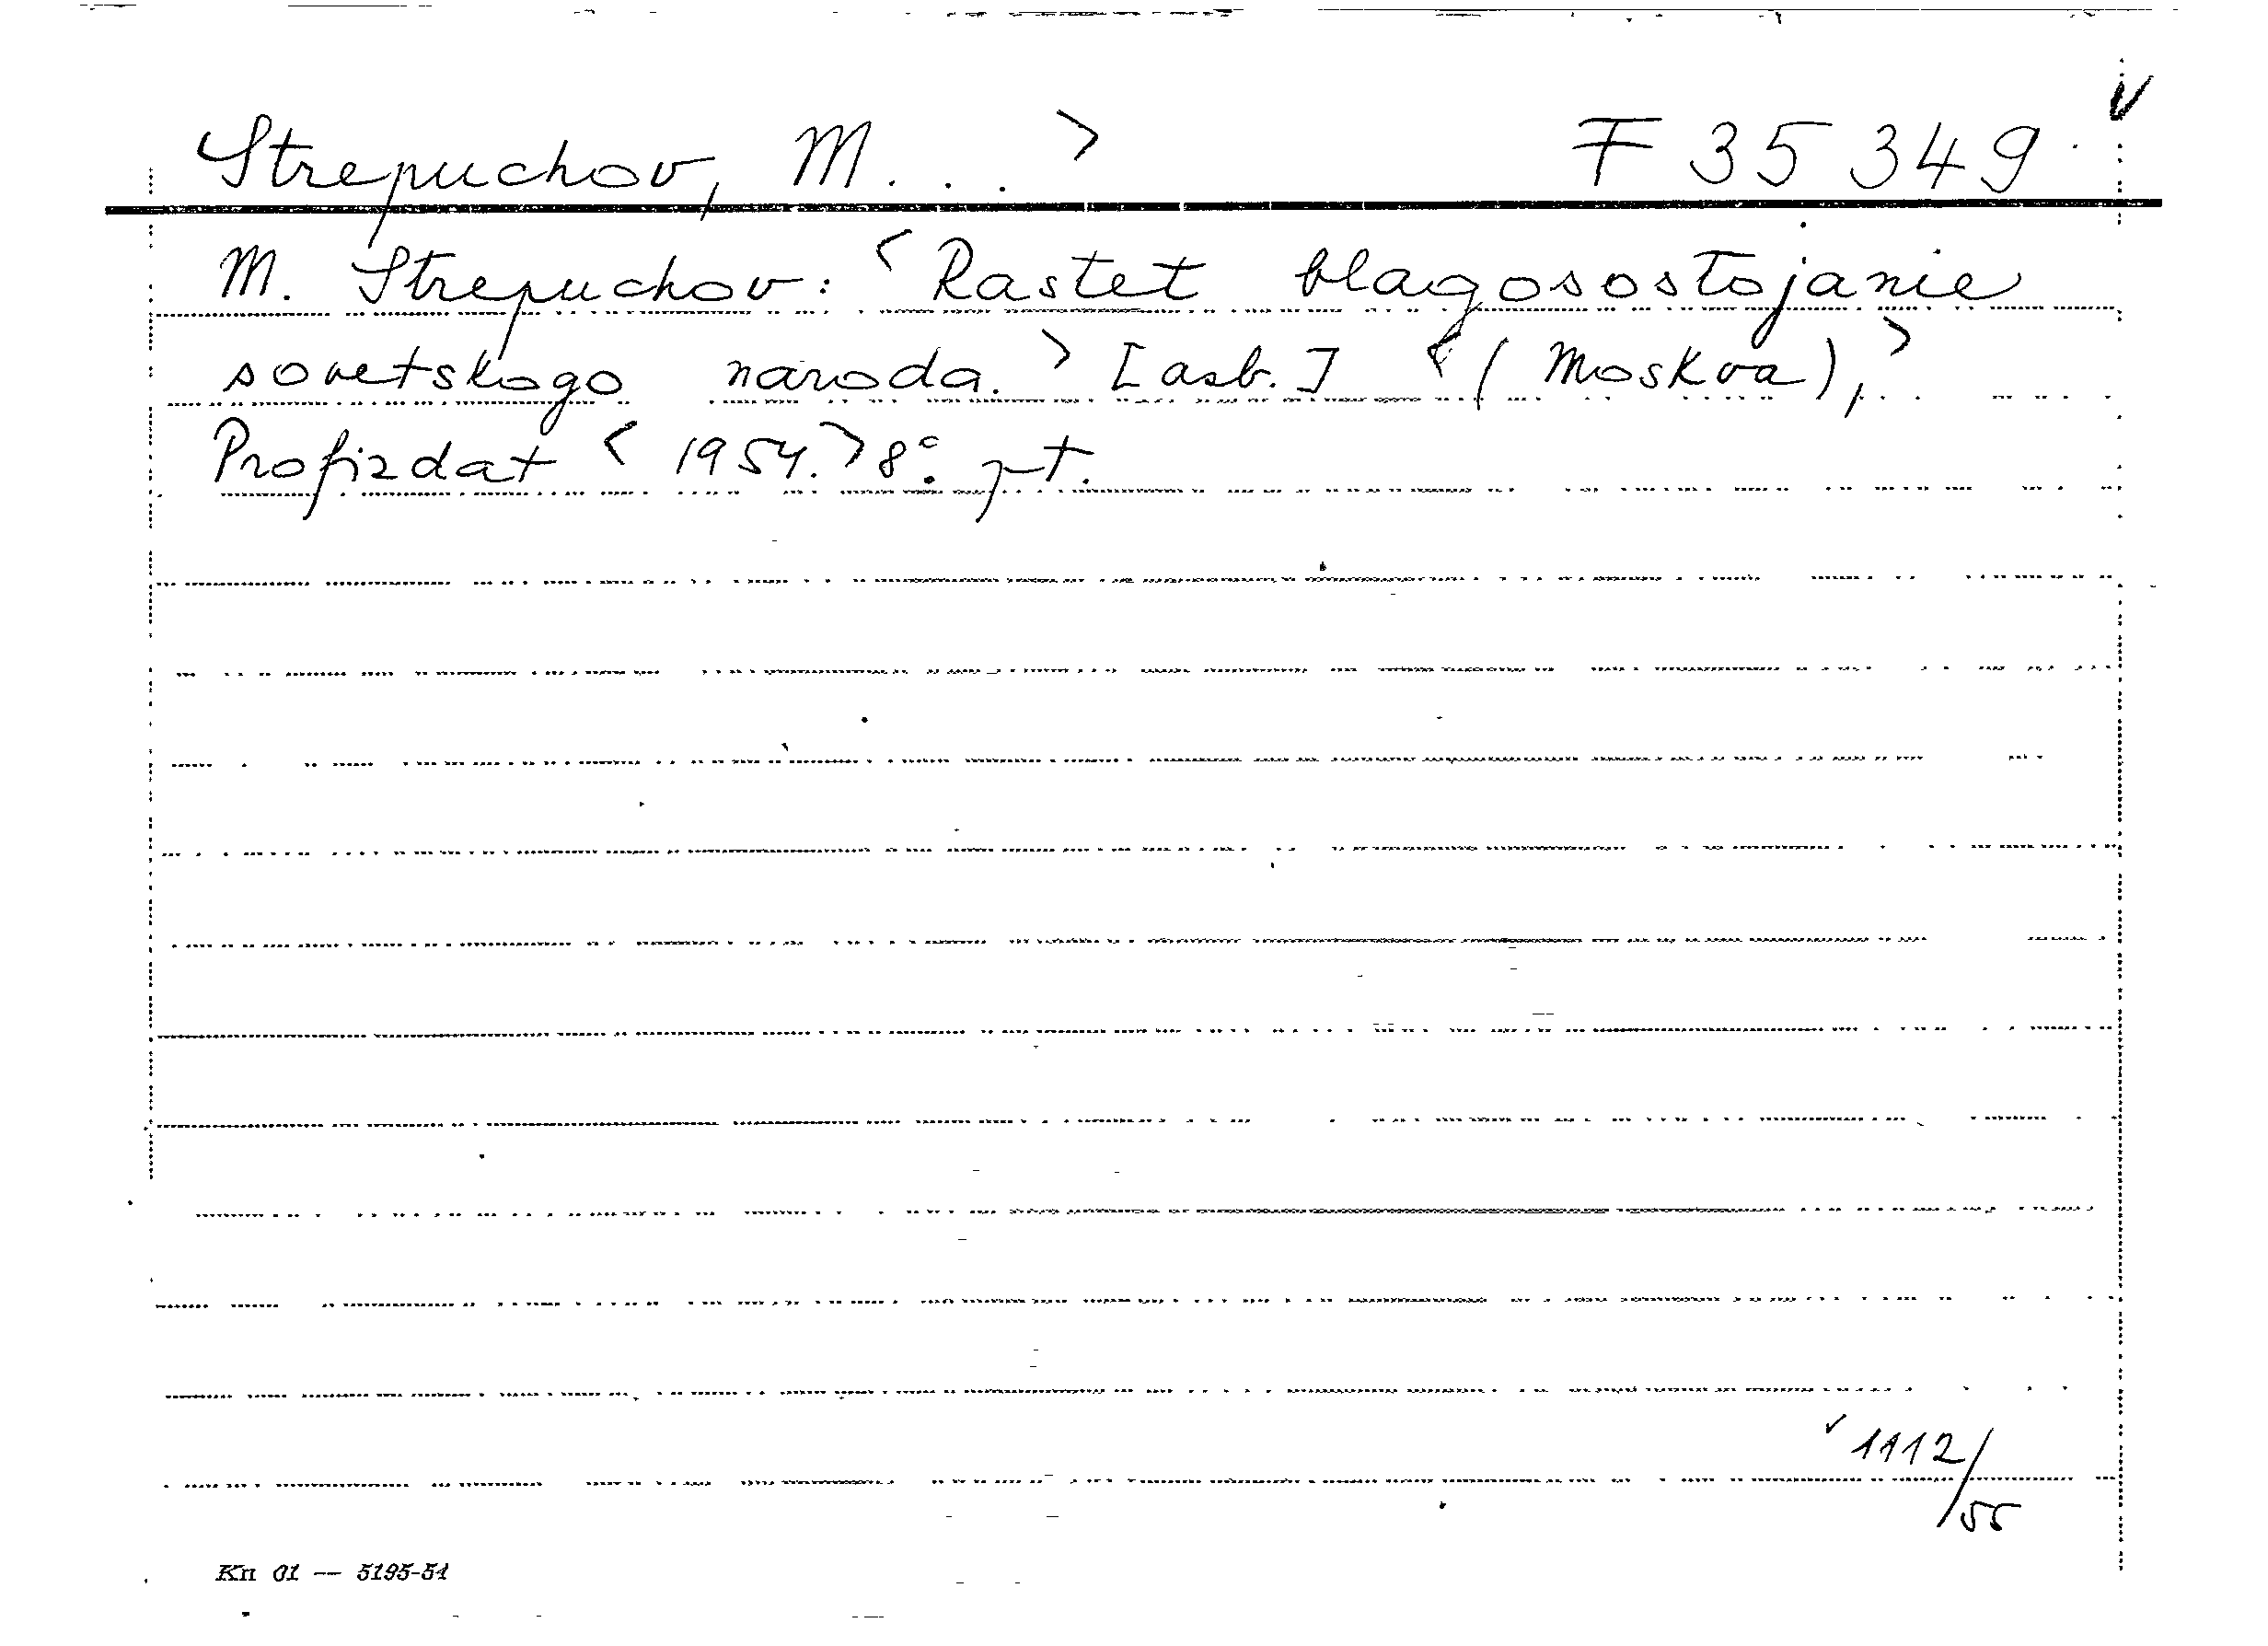 Strepuchov, M. . . > F 35 349
M. Strepuchov: < Rastet blagosostojanie
sovetskogo naroda. > [asb.] < (Moskva), >
Profizdat < 1954. > 8°. pt.
1112/55
Kn 01 — 5195-54